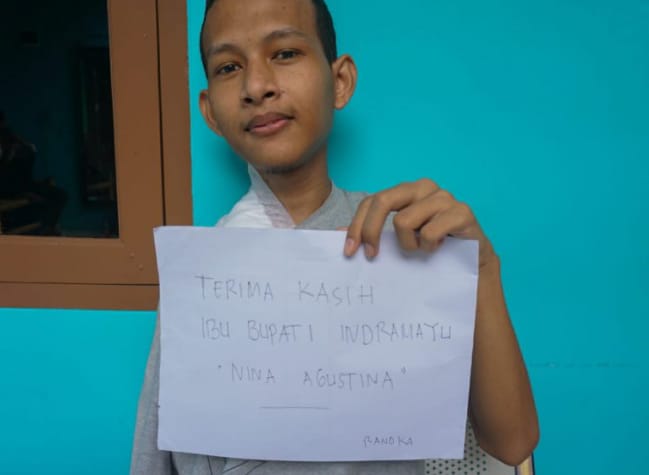 TERIMA KASIH
IBU BUPATI INDRAMAYU
"NINA AGUSTINA"
RANDKA